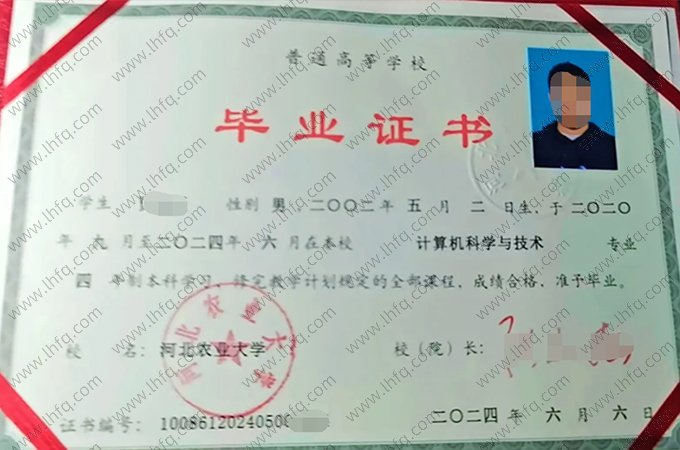 普通高等学校
毕业证书
学生 性别 男，二〇〇二年 五 月 二 日生，于二〇二〇
年 九 月至二〇二四年 六 月在本校 计算机科学与技术 专业
四 年制本科学习，修完教学计划规定的全部课程，成绩合格，准予毕业。
校 名：河北农业大学 校（院）长：
河北农业大学
证书编号：10086120240500
二〇二四 年 六 月 六 日
www.lhfq.com